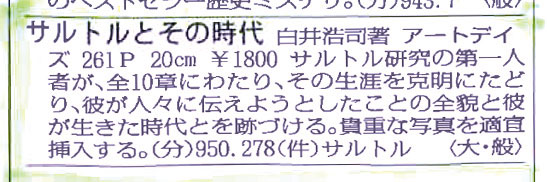 のベストセラー歴史ミステリ。(分)943.7 〈般〉
サルトルとその時代 白井浩司著 アートデイ
ズ 261P 20cm ¥1800 サルトル研究の第一人
者が、全10章にわたり、その生涯を克明にたど
り、彼が人々に伝えようとしたことの全貌と彼
が生きた時代とを跡づける。貴重な写真を適宜
挿入する。(分)950.278(件)サルトル 〈大・般〉